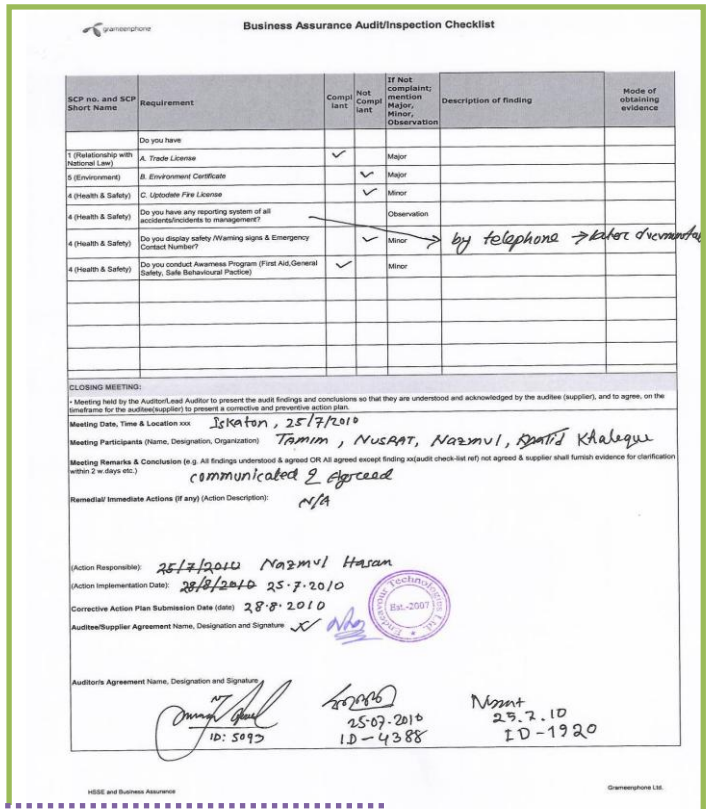 grameenphone
Business Assurance Audit/Inspection Checklist
SCP no. and SCP Short Name
Requirement
Compliant
Not Compliant
If Not complaint; mention Major, Minor, Observation
Description of finding
Mode of obtaining evidence
Do you have
1 (Relationship with National Law) A. Trade License ✓ Major
5 (Environment) B. Environment Certificate ✓ Major
4 (Health & Safety) C. Uptodate Fire License ✓ Minor
4 (Health & Safety) Do you have any reporting system of all accidents/incidents to management? Observation
4 (Health & Safety) Do you display safety /Warning signs & Emergency Contact Number? ✓ Minor by telephone → later
4 (Health & Safety) Do you conduct Awarness Program (First Aid,General Safety, Safe Behavioural Pactice) ✓ Minor
CLOSING MEETING:
• Meeting held by the Auditor/Lead Auditor to present the audit findings and conclusions so that they are understood and acknowledged by the auditee (supplier), and to agree, on the
timeframe for the auditee(supplier) to present a corrective and preventive action plan.
Meeting Date, Time & Location xxx Iskaton, 25/7/2010
Meeting Participants (Name, Designation, Organization) Tamim, Nusrat, Nazmul, Khaleque
Meeting Remarks & Conclusion (e.g. All findings understood & agreed OR All agreed except finding xx(audit check-list ref) not agreed & supplier shall furnish evidence for clarification
within 2 w.days etc.) communicated & agreed
Remedial/ Immediate Actions (if any) (Action Description): N/A
(Action Responsible): 25/7/2010 Nazmul Hasan
(Action Implementation Date): 28/8/2010 25.7.2010
Corrective Action Plan Submission Date (date) 28.8.2010
Auditee/Supplier Agreement Name, Designation and Signature
Endeavour Technologies Ltd.
Est.-2007
Auditor/s Agreement Name, Designation and Signature
ID: 5093
25-07-2010
ID-4388
25.7.10
ID-1920
HSSE and Business Assurance
Grameenphone Ltd.